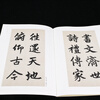 書文濟世
詩禮傳家
往還天地
俯仰古今